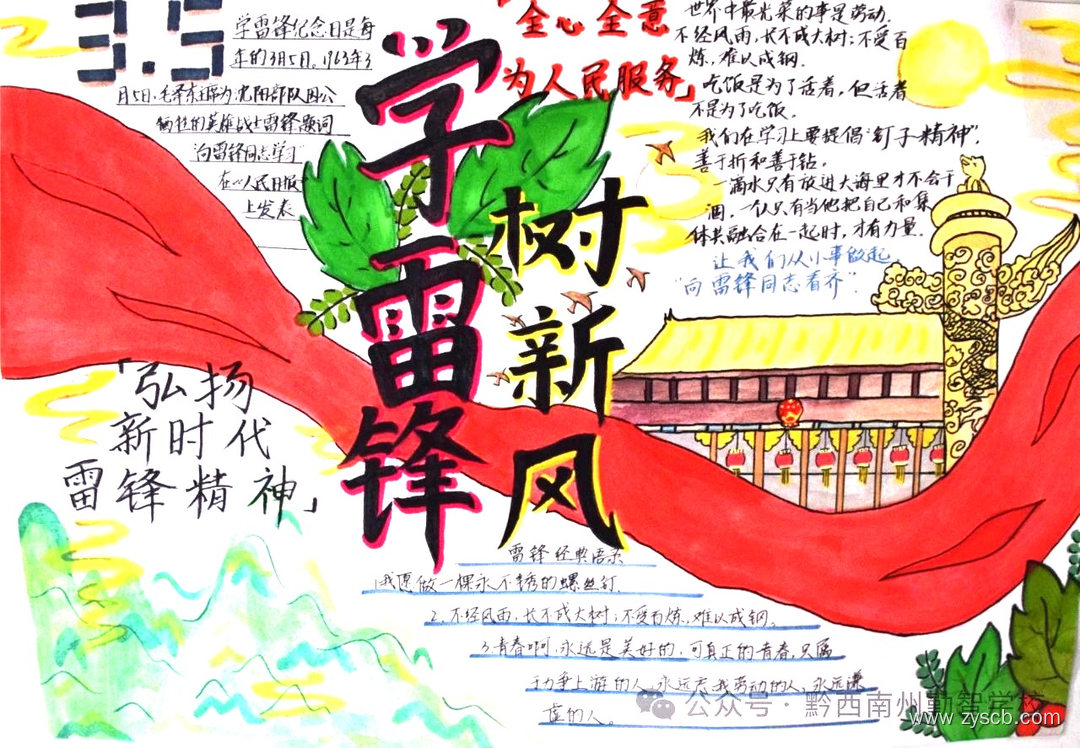 3.5
学雷锋纪念日是每
年的3月5日。1963年3
月5日,毛泽东主席为沈阳部队因公
牺牲的英雄战士雷锋题词
"向雷锋同志学习"
在《人民日报》
上发表
学雷锋
树新风
「全心全意
为人民服务」
世界中最光荣的事是劳动.
不经风雨,长不成大树;不受百
炼,难以成钢.
吃饭是为了活着,但活着
不是为了吃饭.
我们在学习上要提倡"钉子精神",
善于挤和善于钻.
一滴水只有放进大海里才不会干
涸,一个人只有当他把自己和集
体共融合在一起时,才有力量.
让我们从小事做起
"向雷锋同志看齐".
「弘扬
新时代
雷锋精神」
雷锋经典语录
1.我愿做一棵永不锈的螺丝钉.
2.不经风雨,长不成大树;不受百炼,难以成钢。
3.青春啊,永远是美好的,可真正的青春,只属
于力争上游的人,永远忘我劳动的人,永远谦
虚的人。
公众号·黔西南州勤智学校
www.zyscb.com